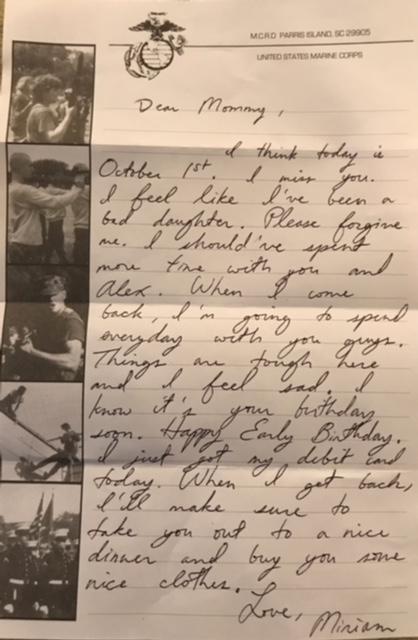 M.C.R.D PARRIS ISLAND, SC 29905
UNITED STATES MARINE CORPS
Dear Mommy,
I think today is
October 1st. I miss you.
I feel like I've been a
bad daughter. Please forgive
me. I should've spent
more time with you and
Alex. When I come
back, I'm going to spend
everyday with you guys.
Things are tough here
and I feel sad. I
know it's your birthday
soon. Happy Early Birthday.
I just got my debit card
today. When I get back,
I'll make sure to
take you out to a nice
dinner and buy you some
nice clothes.
Love,
Miriam